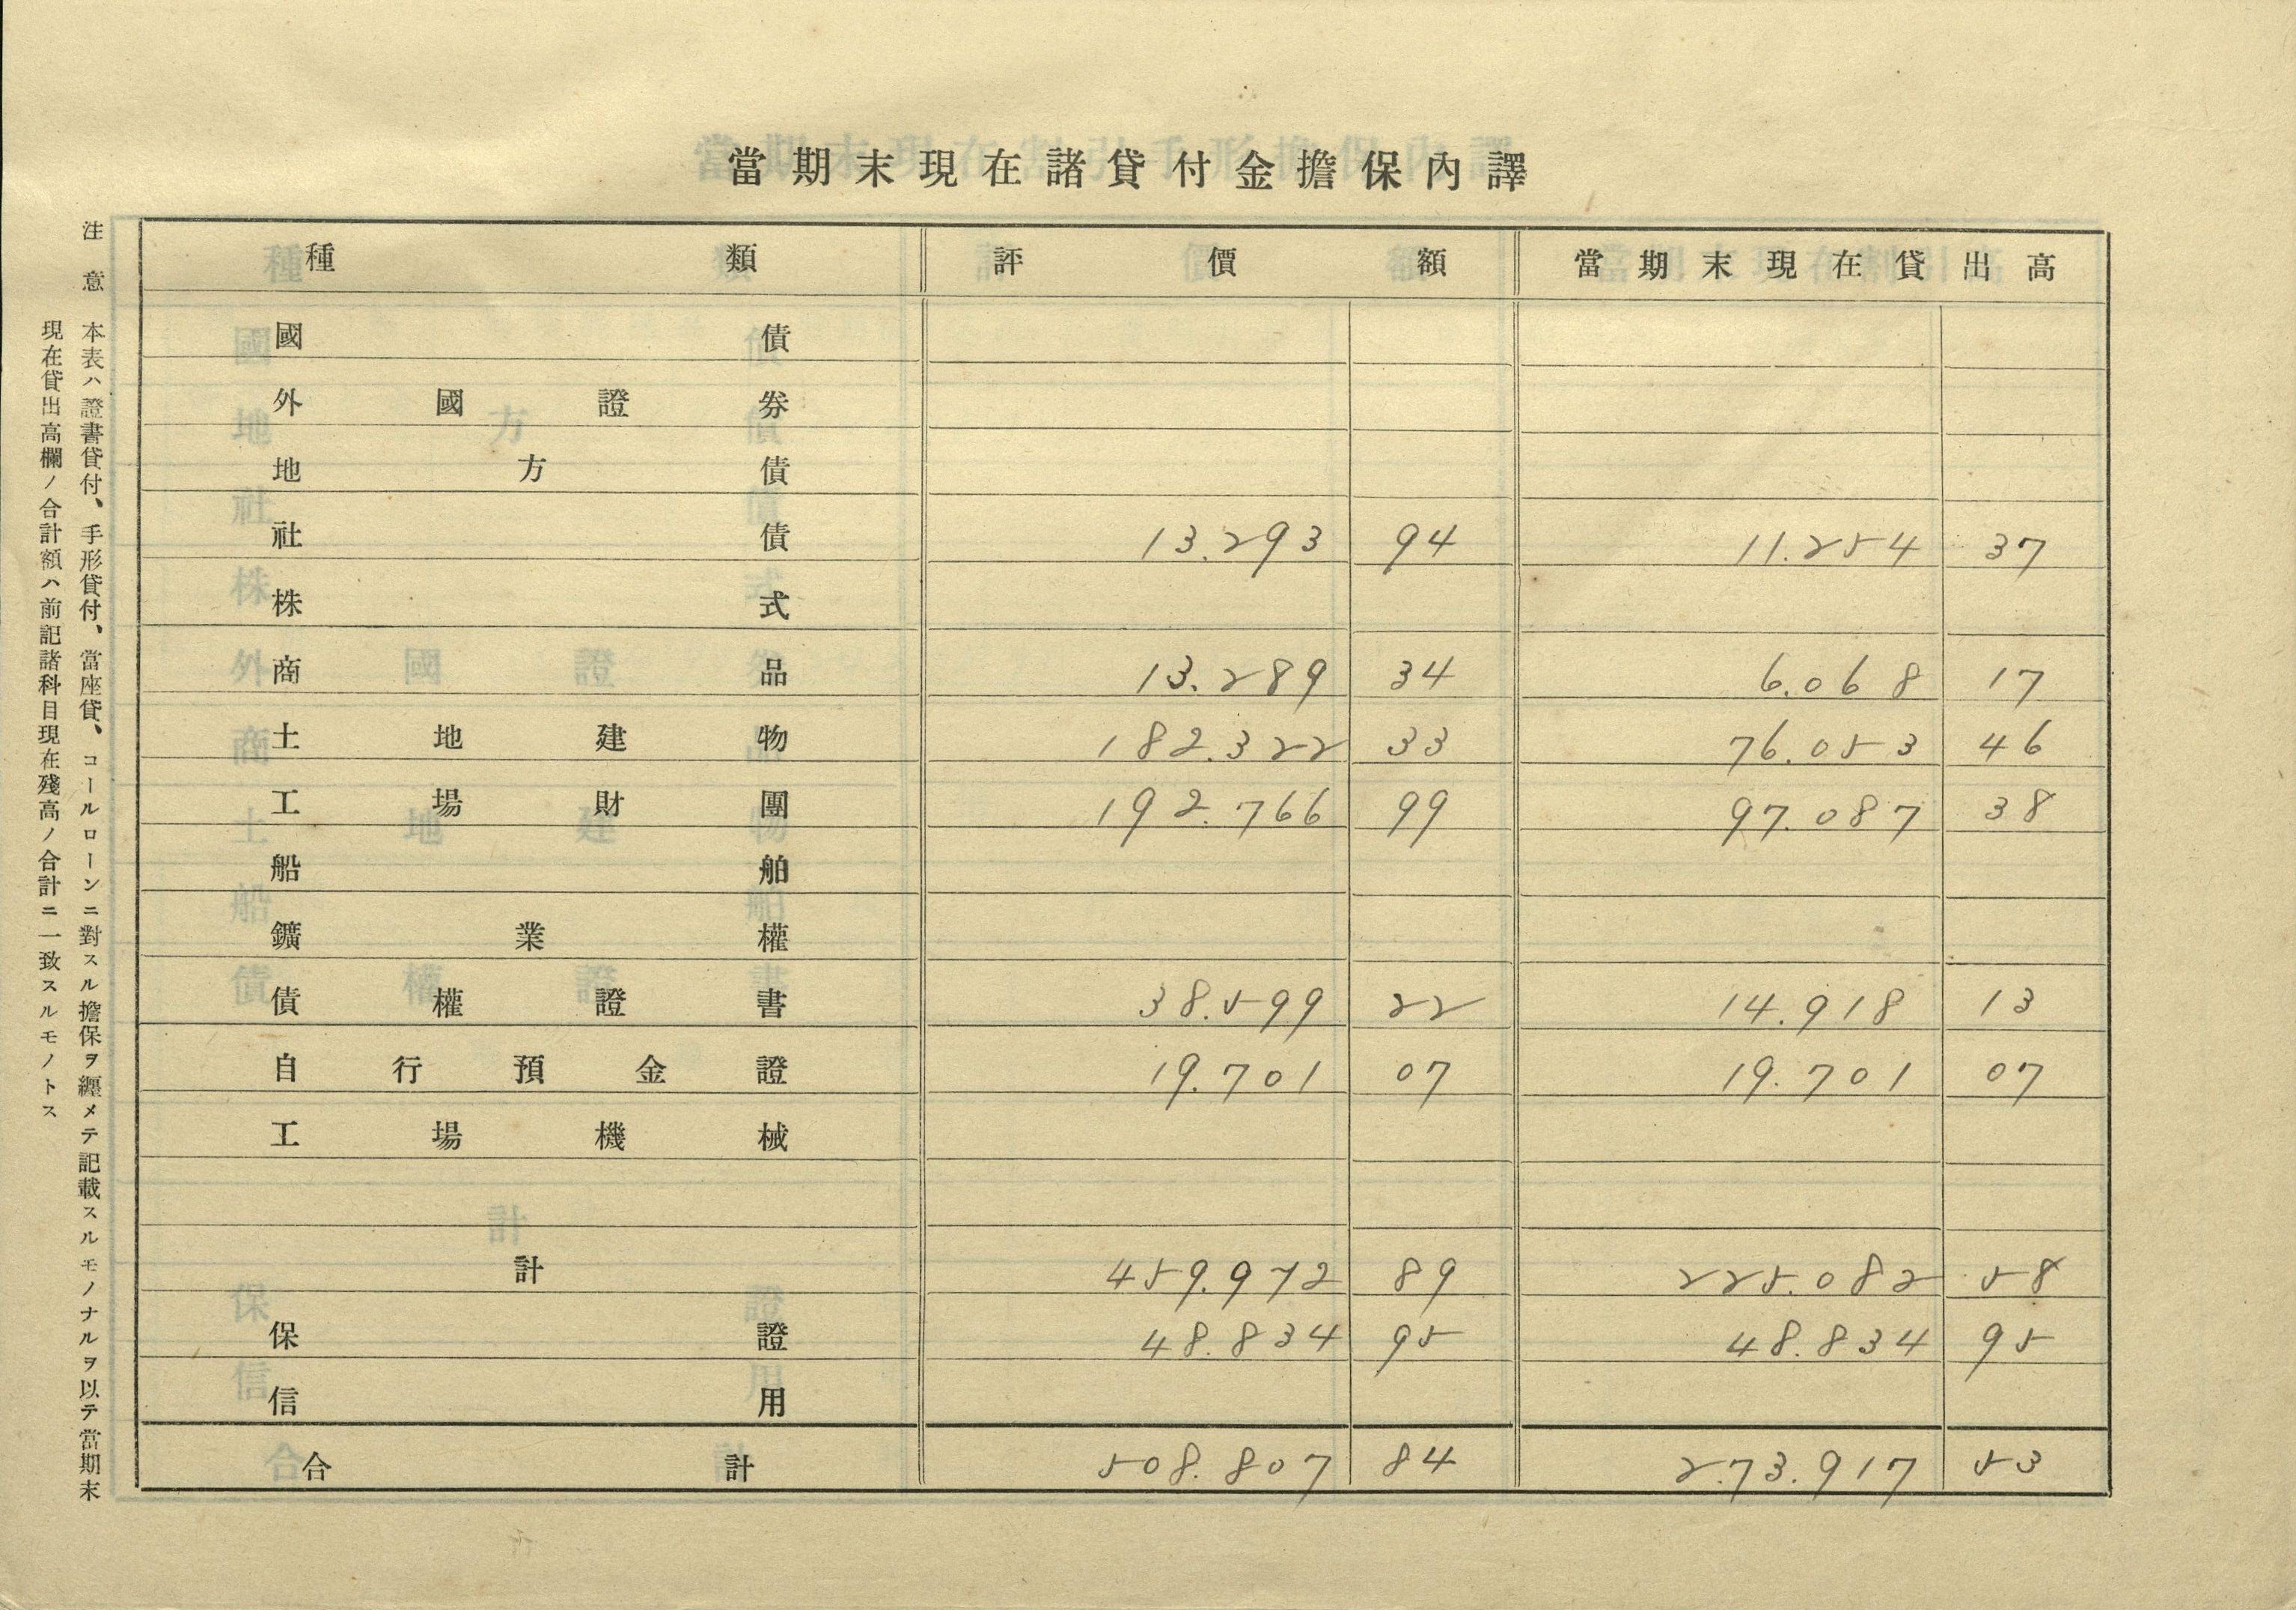 當期末現在諸貸付金擔保內譯
種類 評價額 當期末現在貸出高
國債
外國證券
地方債
社債 13.293 94 11.254 37
株式
商品 13.289 34 6.068 17
土地建物 182.322 33 76.053 46
工場財團 192.766 99 97.087 38
船舶
鑛業權
債權證書 38.599 22 14.918 13
自行預金證 19.701 07 19.701 07
工場機械
計 459.972 89 225.082 58
保證 48.834 95 48.834 95
信用
合計 508.807 84 273.917 53
注意 本表ハ證書貸付、手形貸付、當座貸、コールローンニ對スル擔保ヲ纒メテ記載スルモノナルヲ以テ當期末
現在貸出高欄ノ合計額ハ前記諸科目現在殘高ノ合計ニ一致スルモノトス